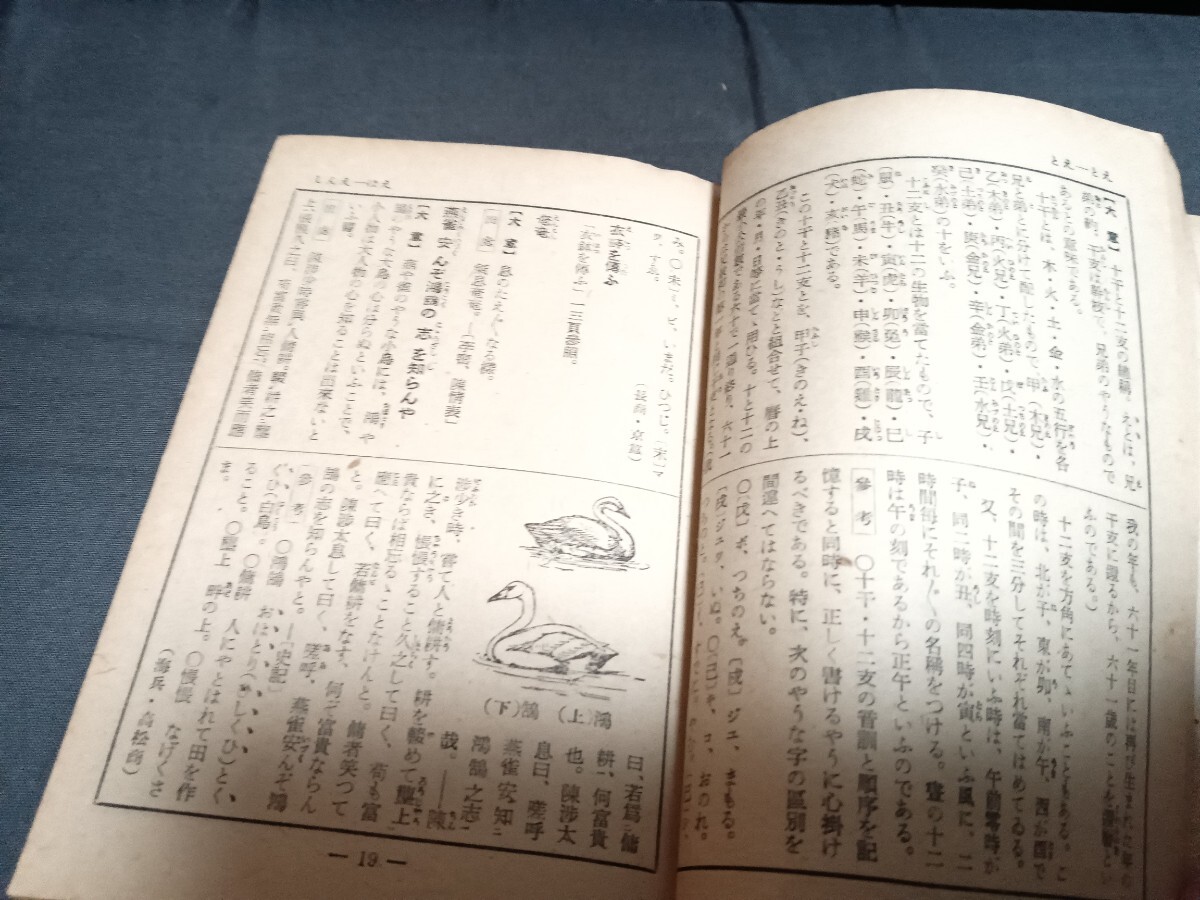 えと―えと
【大意】 十干と十二支の總稱。えとは、兄
弟の約。干支は當字で、兄弟のやうなもので
あるとの意味である。
十干とは、木・火・土・金・水の五行を各
兄と弟に分け一配したもので、甲(木兄)・
乙(木弟)・丙(火兄)・丁(火弟)・戊(土兄)・
己(土弟)・庚(金兄)・辛(金弟)・壬(水兄)・
癸(水弟)の十をいふ。
十二支とは十二の生物を當てたもので、子
(鼠)・丑(牛)・寅(虎)・卯(兎)・辰(龍)・巳
(蛇)・午(馬)・未(羊)・申(猴)・酉(雞)・戌
(犬)・亥(豬)である。
この十干と十二支とを、甲子(きのえ・ね)、
乙丑(きのと・うし)などと組合せて、曆の上
の年・月・日等に當て、用ひる。十と十二の
我の年も、六十一年目には再び生まれた年の
干支に還るから、六十一歲のことを還曆とい
ふのである。)
十二支を方角にあてゝいふこともある。こ
の時は、北が子、東が卯、南が午、西が酉で
その間を三分してそれぞれ當てはめてゐる。
又、十二支を時刻にいふ時は、午前零時が
子、同二時が丑、同四時が寅といふ風に、二
時間每にそれ〴〵の名稱をつける。晝の十二
時は午の刻であるから正午といふのである。
【參考】 〇十干・十二支の音訓と順序を記
憶すると同時に、正しく書けるやうに心掛け
るべきである。特に、次のやうな字の區別を
間違へてはならない。
〇〔戊〕ボ、つちのえ。〔戍〕ジュ、まもる。
〔戌〕ジュツ、いぬ。〇〔己〕キ、コ、おのれ。
えは―ええと
み。〇〔未〕ミ、ビ、いまだ。ひつじ。〔末〕マ
ツ、すゑ。
衣鉢を傳ふ
「衣鉢を傳ふ」一三頁參照。
奄奄
氣息奄奄。―(李密、陳情表)
【大意】 息のたえ〴〵なる樣。
燕雀安んぞ鴻鵠の志を知らんや
【大意】 燕や雀のやうな小鳥には、鴻や
鵠のやうな大鳥の心は分らぬといふことで、
小人物は大人物の心を知ることは出來ないと
いふ譬。
鴻(上)
鵠(下)
曰、若爲傭
耕、何富貴
也。陳涉太
息曰、嗟呼
燕雀安知
鴻鵠之志
哉。――陳
涉少き時、嘗て人と傭耕す。耕を輟めて壟上
に之き、悵恨すること久之して曰く、苟も富
貴ならば相忘るゝことなけんと。傭者笑つて
應へて曰く、若傭耕をなす、何ぞ富貴ならん
と。陳涉太息して曰く、嗟呼、燕雀安んぞ鴻
鵠の志を知らんやと。 ―(史記)
【參考】 〇鴻鵠 おほとり(ひしくひ)とく
ぐひ(白鳥)。〇傭耕 人にやとはれて田を作
ること。〇壟上 畔の上。〇悵恨 なげくさ
ま。 (海兵・高松商)
― 19 ―